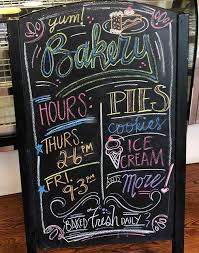 yum!
Bakery
HOURS:
THURS.
2-6 PM
FRI.
9-3 PM
PIES
cookies
ICE
CREAM
& More!
BAKED Fresh DAILY